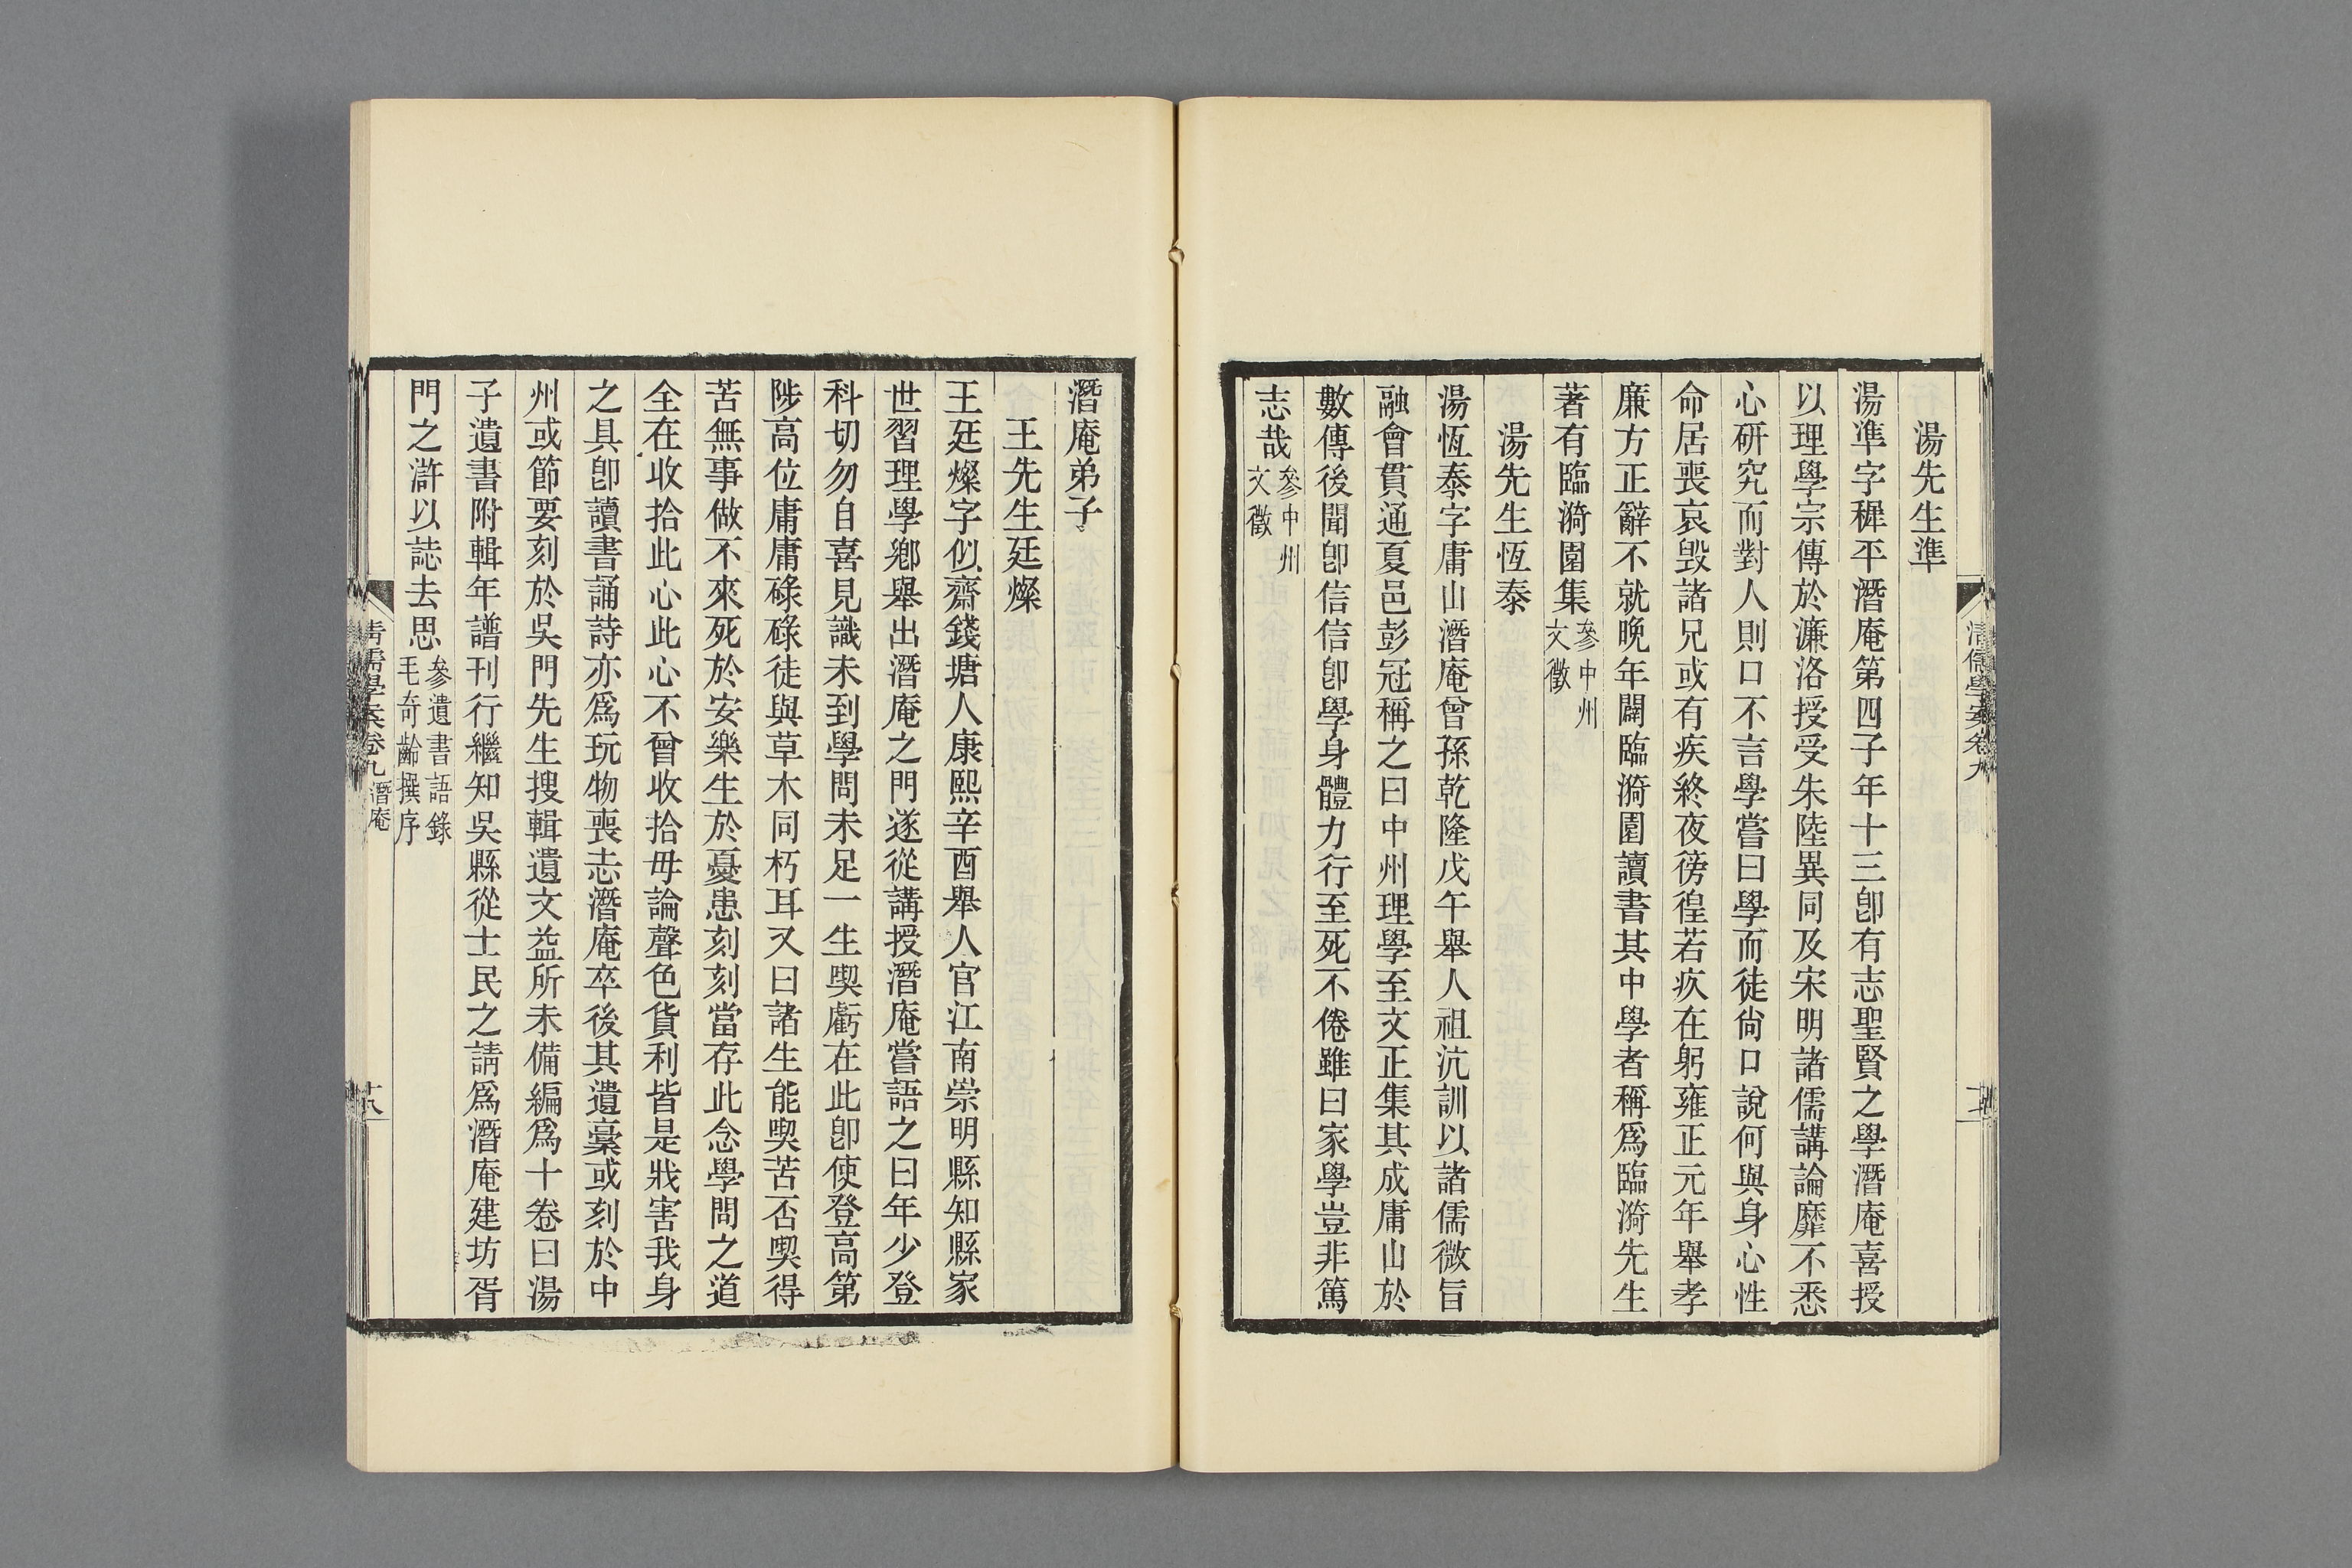 湯先生準
湯準字稺平潛庵第四子年十三卽有志聖賢之學潛庵喜授
以理學宗傳於濂洛授受朱陸異同及宋明諸儒講論靡不悉
心研究而對人則口不言學嘗曰學而徒尙口說何與身心性
命居喪哀毀諸兄或有疾終夜徬徨若疚在躬雍正元年舉孝
廉方正辭不就晚年闢臨漪園讀書其中學者稱爲臨漪先生
著有臨漪園集參中州
文徵
湯先生恆泰
湯恆泰字庸山潛庵曾孫乾隆戊午舉人祖沆訓以諸儒微旨
融會貫通夏邑彭冠稱之曰中州理學至文正集其成庸山於
數傳後聞卽信信卽學身體力行至死不倦雖曰家學豈非篤
志哉參中州
文徵
清儒學案卷九
潛庵弟子
王先生廷燦
王廷燦字似齋錢塘人康熙辛酉舉人官江南崇明縣知縣家
世習理學鄉舉出潛庵之門遂從講授潛庵嘗語之曰年少登
科切勿自喜見識未到學問未足一生喫虧在此卽使登高第
陟高位庸庸碌碌徒與草木同朽耳又曰諸生能喫苦否喫得
苦無事做不來死於安樂生於憂患刻刻當存此念學問之道
全在收拾此心此心不曾收拾毋論聲色貨利皆是戕害我身
之具卽讀書誦詩亦爲玩物喪志潛庵卒後其遺稾或刻於中
州或節要刻於吳門先生搜輯遺文益所未備編爲十卷曰湯
子遺書附輯年譜刊行繼知吳縣從士民之請爲潛庵建坊胥
門之滸以誌去思參遺書語錄
毛奇齡撰序
清儒學案卷九 潛庵
十八